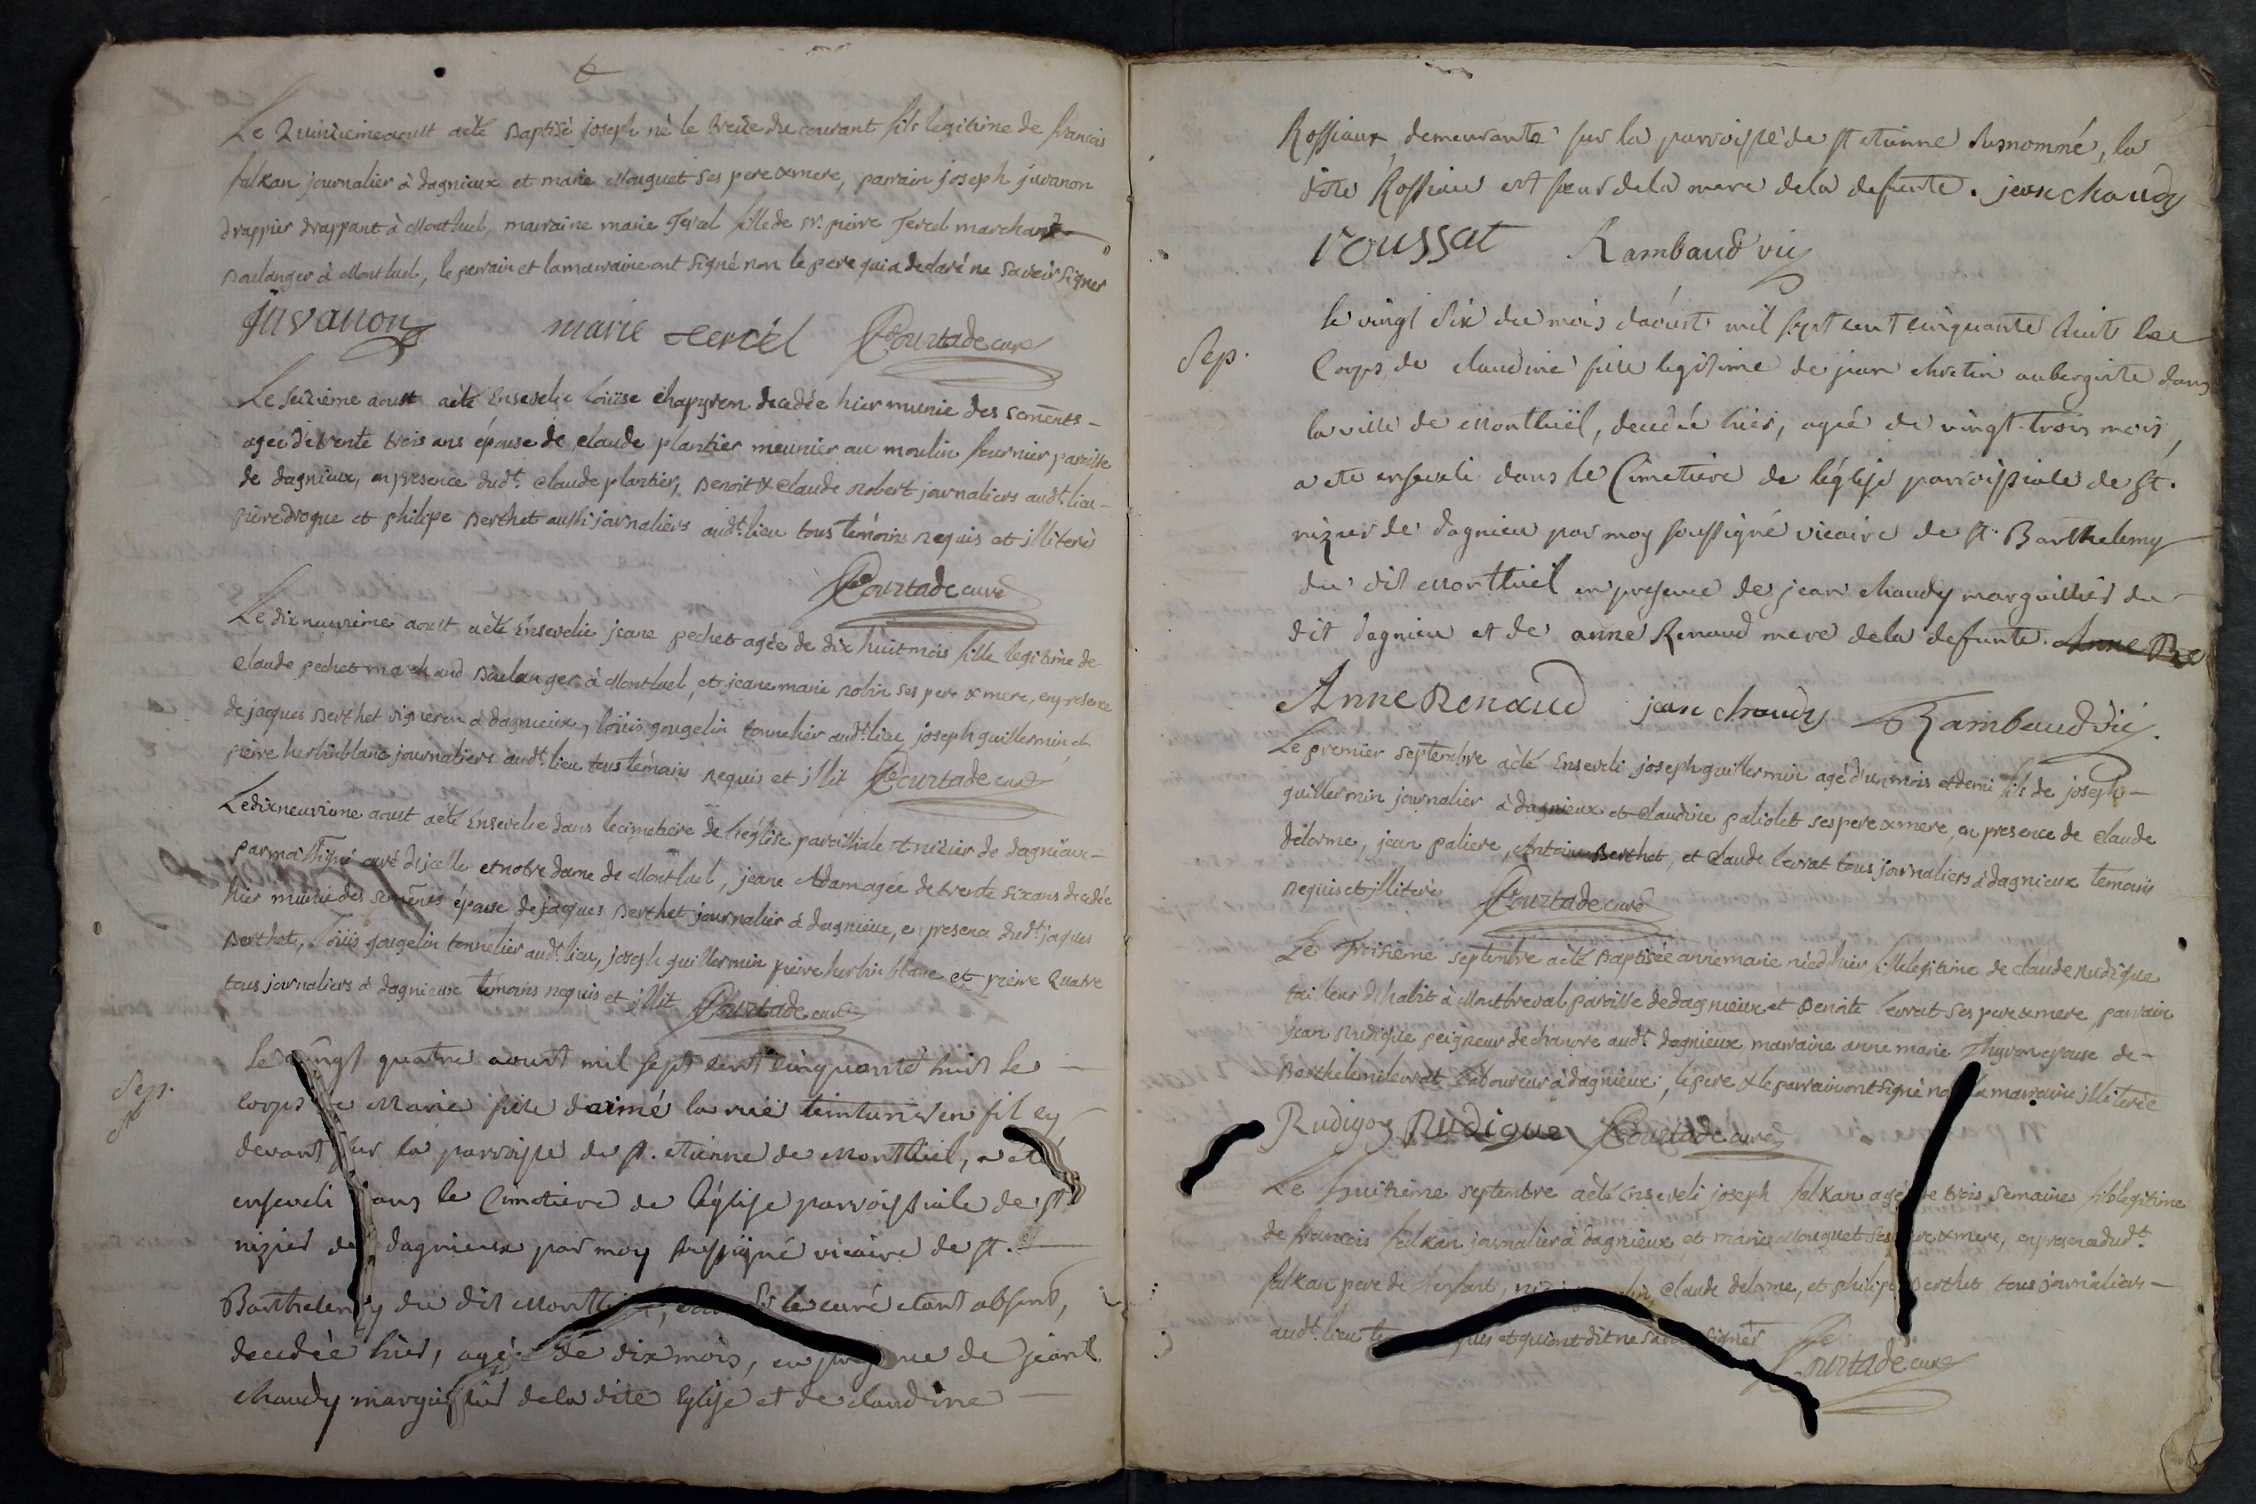 Le Quinzieme aoust aété Baptisé joseph né le treize du courant fils legitime de francois
falkan journalier à dagnieux et marie Mouguet ses pere & mere, parrain joseph juvanon
drappier drappant à Montluel, marraine marie Tercel fille de sr. pierre Tercel marchand
Boulanger à Montluel, le parrain et la marraine ont signé non le pere qui a declaré ne savoir signer
Juvanon marie tercel Courtade curé
Le seizième aoust aété Ensevelie Loüise Chapyron decedée hier munie des sacrements
agée de trente trois ans épouse de Claude plantier meunier au moulin fournier paroisse
de dagnieux, en presence dudt. Claude plantier, Benoit & Claude Robert journaliers audt. lieu
pierre drogue et philipe Berthet aussi journaliers audt. lieu tous témoins requis et illiteré
Courtade curé
Le dix neuvième aoust aété Ensevelie jeane pechet agée de dix huit mois fille legitime de
Claude pechet marchand Boulanger à Montluel, et jeane marie robin ses pere & mere, en presence
de jaques Berthet vigneron à dagnieux, loüis gougelin tonnelier audt. lieu joseph guillermin et
pierre herbinblanc journaliers audt. lieu tous témoins requis et illit Courtade curé
Le dixneuvieme aoust aété Ensevelie dans le cimetiere de l'église paroissiale st nizier de dagnieux
par moi ssigné curé d'icelle et notre dame de Montluel, jeane Adam agée de trente six ans decedée
hier munie des sacrements épouse de jaques Berthet journalier à dagnieux, en presence dudt. jaques
Berthet, loüis gougelin tonnelier audt. lieu, joseph guillermin pierre herbin blanc et pierre Quatre
tous journaliers à dagnieux témoins requis et illit Courtade curé
Sep.
le vingt quatre aoust mil sept cent cinquante huit le
corps de Marie fille d'aimé la ruë teinturier en fil cy
devant sur la parroisse de st. etienne de Montluël, a eté
enseveli dans le Cimetiere de l'église parroissiale de st
nizier de dagnieux par moy soussigné vicaire de st.
Barthelemy du dit Montluël, le curé etant absent,
decedée hier, agée de dix mois, en presence de jean
chaudy marguillier de la dite Eglise et de claudine
Rossiaux demeurante sur la parroisse de st etienne susnommé, la
dite Rossiau est sœur de la mere de la defunte. jean chaudy
roussat Rambaud vic
Sep.
le vingt six du mois d'aoust mil sept cent cinquante huit le
Corps de claudine fille legitime de jean chretin aubergiste dans
la ville de Montluël, decedée hier, agée de vingt-trois mois,
a eté enseveli dans le Cimetiere de l'église parroissiale de st.
nizier de dagnieu par moy soussigné vicaire de st. Barthelemy
du dit Montluël en presence de jean chaudy marguillier du
dit dagnieu et de anne Renaud mere de la defunte. Anne Re
Anne Renaud jean chaudy Rambaud vic.
Le premier septembre aété Enseveli joseph guillermin agé d'un mois et demi fils de joseph
guillermin journalier à dagnieux et Claudine paliolet ses pere & mere, en presence de Claude
delorme, jean paliere, Antoine Berthet, et Claude levrat tous journaliers à dagnieux temoins
requis et illiterés Courtade curé
Le Troisième septembre aété Baptisée anne marie née d'hier fille legitime de claude Rudigue
tailleur d'habit à Montbreval paroisse de dagnieux et Benoite levrat ses pere & mere parrain
jean Rudigue peigneur de chanvre audt. dagnieux marraine anne marie Thyvon epouse de
Berthelemi levrat laboureur à dagnieux, le pere & le parrain ont signé non la marraine illiterée
Rudigoz Rudigue Courtade curé
Le huitième septembre aété Enseveli joseph falkan agé de trois semaines fils legitime
de francois falkan journalier à dagnieux et marie Mouguet ses pere & mere, en presence dudt.
falkan pere de l'enfant, Claude delorme, et philipe Berthet tous journaliers
audt. lieu et qui ont dit ne savoir signer
Courtade curé